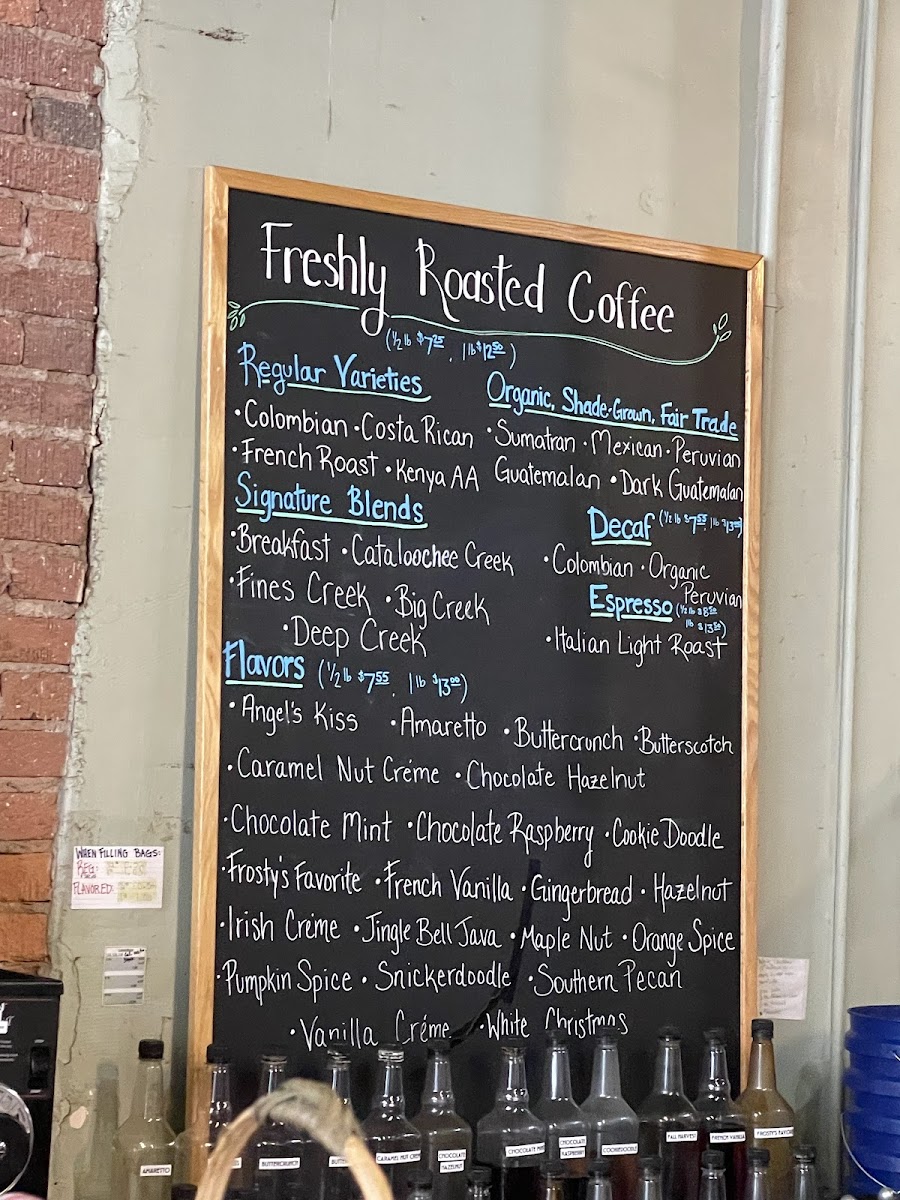 Freshly Roasted Coffee
(½ lb $7.25, 1 lb $12.50)
Regular Varieties
•Colombian •Costa Rican
•French Roast •Kenya AA
Organic, Shade-Grown, Fair Trade
•Sumatran •Mexican •Peruvian
Guatemalan •Dark Guatemalan
Signature Blends
•Breakfast •Cataloochee Creek
•Fines Creek •Big Creek
•Deep Creek
Decaf (½ lb $7.55 1 lb $13.00)
•Colombian •Organic
Peruvian
Espresso (½ lb
1 lb
•Italian Light Roast
Flavors (½ lb $7.55, 1 lb $13.00)
•Angel's Kiss •Amaretto •Buttercrunch •Butterscotch
•Caramel Nut Créme •Chocolate Hazelnut
•Chocolate Mint •Chocolate Raspberry •Cookie Doodle
•Frosty's Favorite •French Vanilla •Gingerbread •Hazelnut
•Irish Créme •Jingle Bell Java •Maple Nut •Orange Spice
•Pumpkin Spice •Snickerdoodle •Southern Pecan
•Vanilla Créme •White Christmas
WHEN FILLING BAGS:
REG:
FLAVORED:
AMARETTO
BUTTERCRUNCH
CARAMEL NUT
CHOCOLATE
HAZELNUT
CHOCOLATE MINT
CHOCOLATE
RASPBERRY
COOKIEDOODLE
FALL HARVEST
FRENCH VANILLA
FROSTY'S FAVORITE